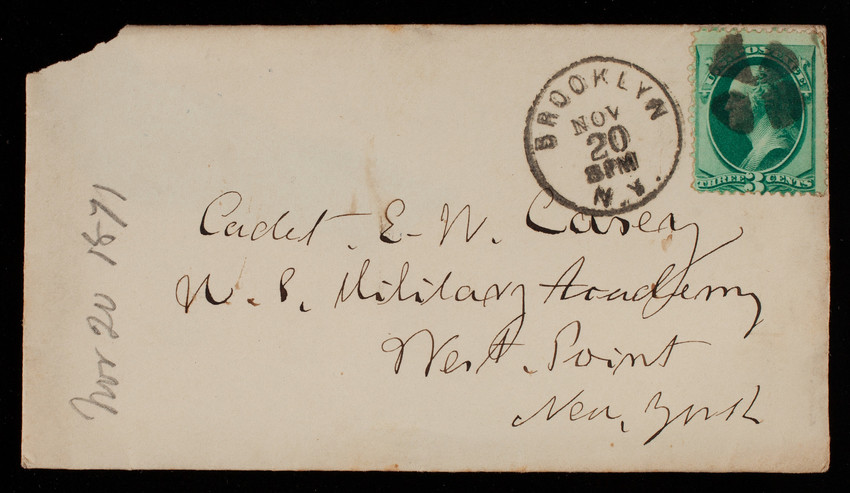 BROOKLYN
NOV
20
8 PM
N.Y.
THREE 3 CENTS
Cadet. E. W. Casey
U. S. Military Academy
West. Point
New, York
Nov 20 1871